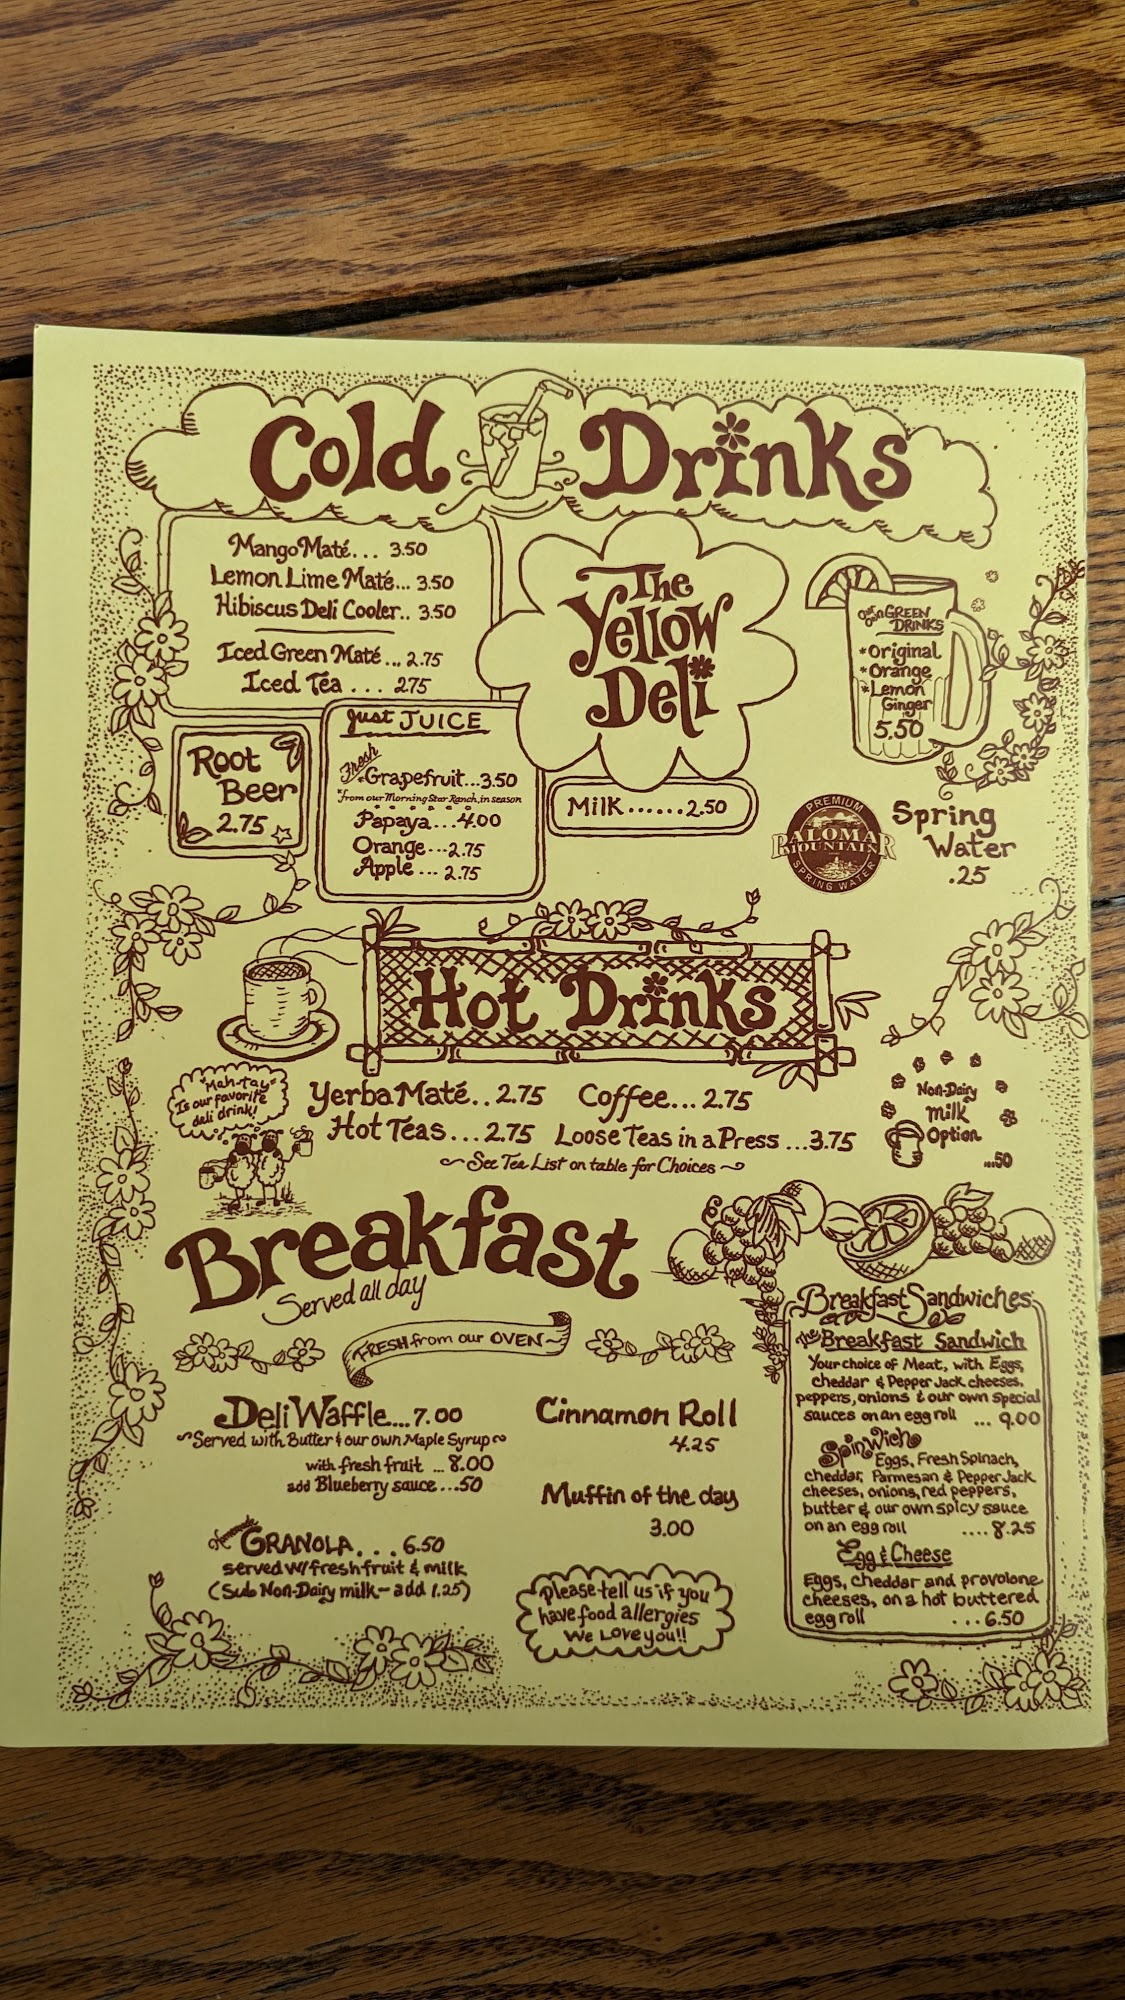 Cold Drinks
Mango Maté... 3.50
Lemon Lime Maté... 3.50
Hibiscus Deli Cooler.. 3.50
Iced Green Maté... 2.75
Iced Tea... 275
The
Yellow
Deli
GREEN
DRINKS
*Original
*Orange
*Lemon
Ginger
5.50
Root
Beer
2.75
Just JUICE
Fresh
*Grapefruit...3.50
*from our Morning Star Ranch, in season
Papaya...4.00
Orange...2.75
Apple... 2.75
Milk......2.50
PREMIUM
PALOMAR
MOUNTAIN
SPRING WATER
Spring
Water
.25
Hot Drinks
"Mah-tay"
Is our favorite
deli drink!
Yerba Maté.. 2.75
Coffee... 2.75
Hot Teas... 2.75
Loose Teas in a Press ...3.75
~See Tea List on table for Choices~
Non-Dairy
Milk
Option
...50
Breakfast
Served all day
FRESH from our OVEN~
Deli Waffle....7.00
~Served with Butter & our own Maple Syrup~
with fresh fruit ... 8.00
add Blueberry sauce ...50
GRANOLA... 6.50
served w/fresh fruit & milk
(Sub Non-Dairy milk-add 1.25)
Cinnamon Roll
4.25
Muffin of the day
3.00
Please tell us if you
have food allergies
We Love you!!
Breakfast Sandwiches
The Breakfast Sandwich
Your choice of Meat, with Eggs,
cheddar & Pepper Jack cheeses,
peppers, onions & our own special
sauces on an egg roll ... 9.00
SpinWich
Eggs, Fresh Spinach,
cheddar, Parmesan & Pepper Jack
cheeses, onions, red peppers,
butter & our own spicy sauce
on an egg roll .... 8.25
Egg & Cheese
Eggs, cheddar and provolone
cheeses, on a hot buttered
egg roll ...6.50